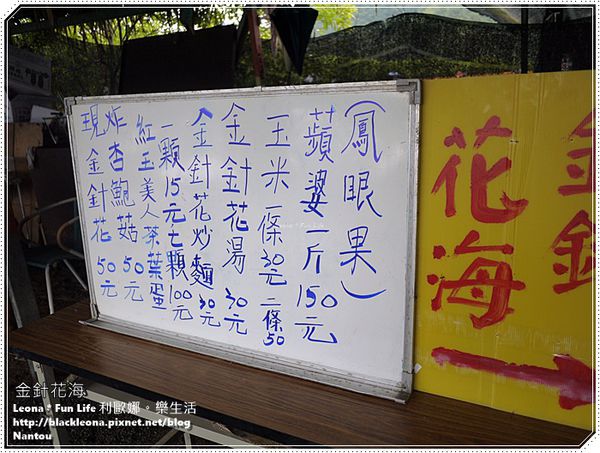 （鳳眼果）
蘋婆一斤150元
玉米一條30元二條50
金針花湯 30元
金針花炒麵30元
一顆15元七顆100元
紅玉美人茶葉蛋
炸杏鮑菇 50元
現金針花 50元
金針
花海
金針花海
Leona * Fun Life 利歐娜。樂生活
http://blackleona.pixnet.net/blog
Nantou